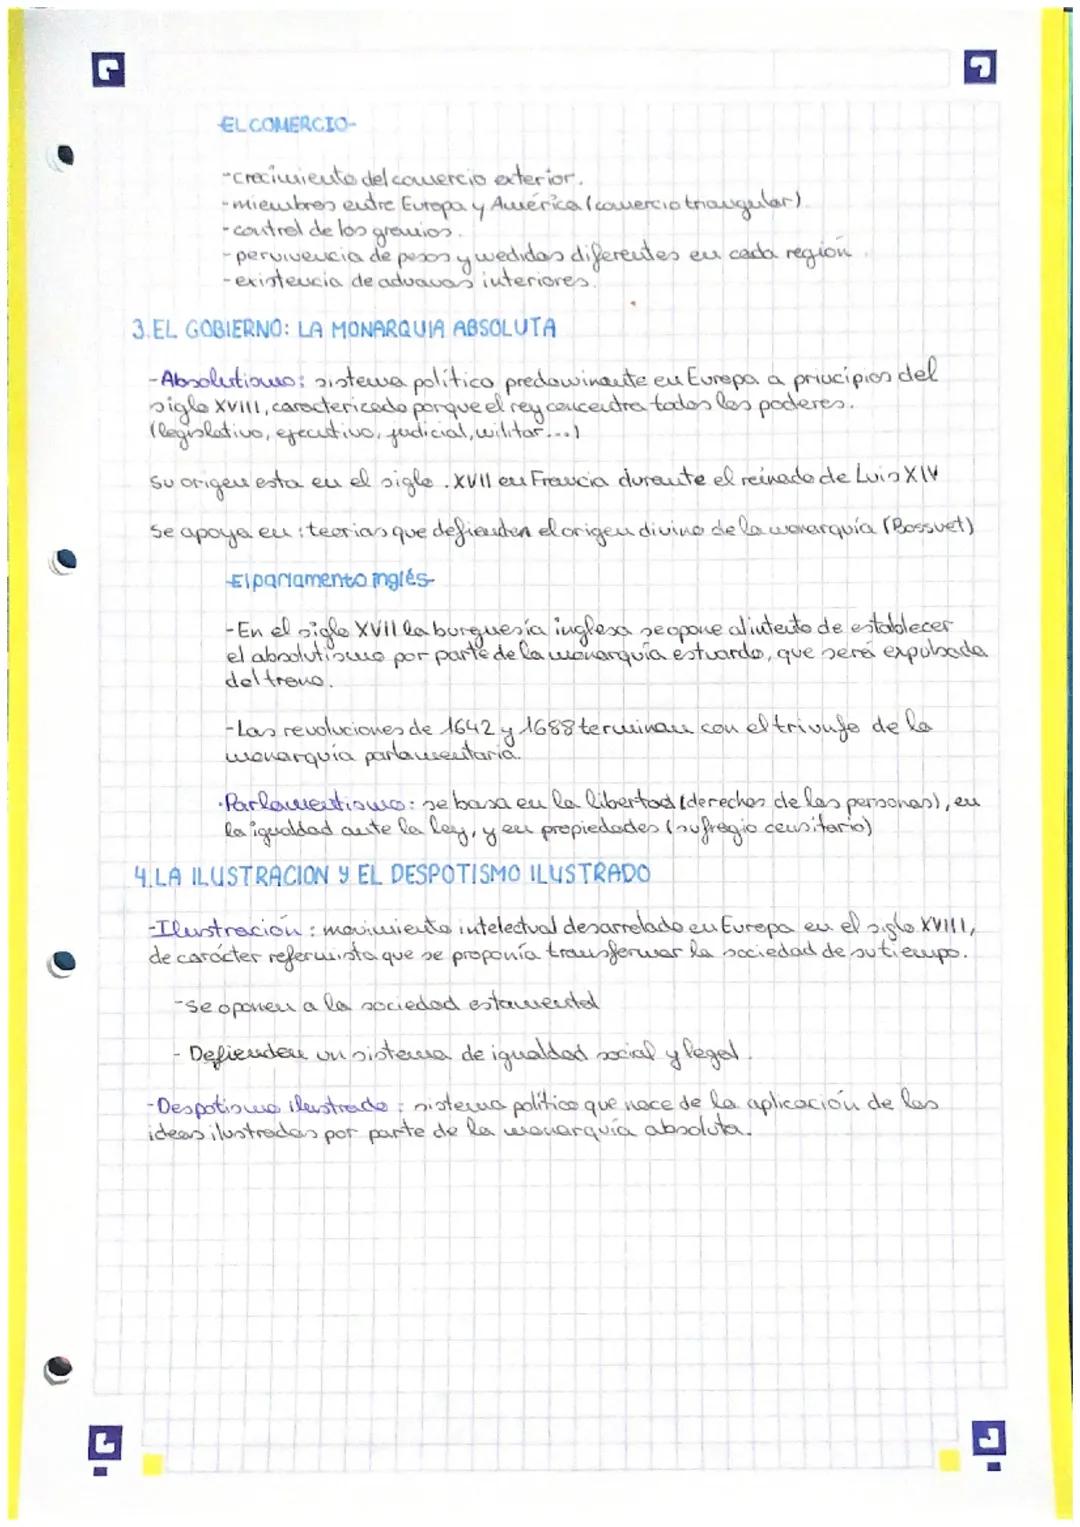 -EL COMERCIO-
-crecimiento del comercio exterior.
-miembros entre Europa y América (comercio triangular).
-control de los gremios.
-pervivencia de pesos y medidas diferentes en cada región.
-existencia de aduanas interiores.
3.EL GOBIERNO: LA MONARQUIA ABSOLUTA
-Absolutismo: sistema político predominante en Europa a principios del
siglo XVIII, caractericado porque el rey concentra todos los poderes.
(legislativo, ejecutivo, judicial, militar...)
Su origen esta en el siglo .XVII en Francia durante el reinado de Luis XIV
Se apoya en : teorias que defienden el origen divino de la monarquía (Bossuet)
-El parlamento inglés-
-En el siglo XVII la burguesía inglesa se opone al intento de establecer
el absolutismo por parte de la monarquía estuardo, que será expulsada
del trono.
-Las revoluciones de 1642 y 1688 terminan con el triunfo de la
monarquía parlamentaria.
·Parlamentismo: se basa en la libertad (derechos de las personas), en
la igualdad ante la ley, y en propiedades (sufragio censitario)
4.LA ILUSTRACION Y EL DESPOTISMO ILUSTRADO
-Ilustración : movimiento intelectual desarrolado en Europa en el siglo XVIII,
de carácter reformista que se proponía transformar la sociedad de su tiempo.
-Se oponen a la sociedad estamental
- Defienden un sistema de igualdad social y legal.
-Despotismo ilustrado : sistema político que nace de la aplicación de las
ideas ilustradas por parte de la monarquía absoluta.